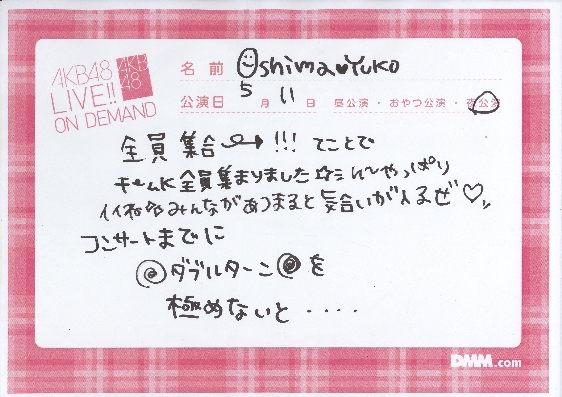 AKB48
LIVE!!
ON DEMAND
AKB
48
名前 Oshima♥Yuko
公演日 5月11日 昼公演・おやつ公演・夜公演
全員集合〜→!!!てことで
チームK全員集まりました☆ミん〜やっぱり
イイね みんながあつまると気合いが入るぜ♡,,
コンサートまでに
◎ダブルターン◎を
極めないと・・・・
DMM.com